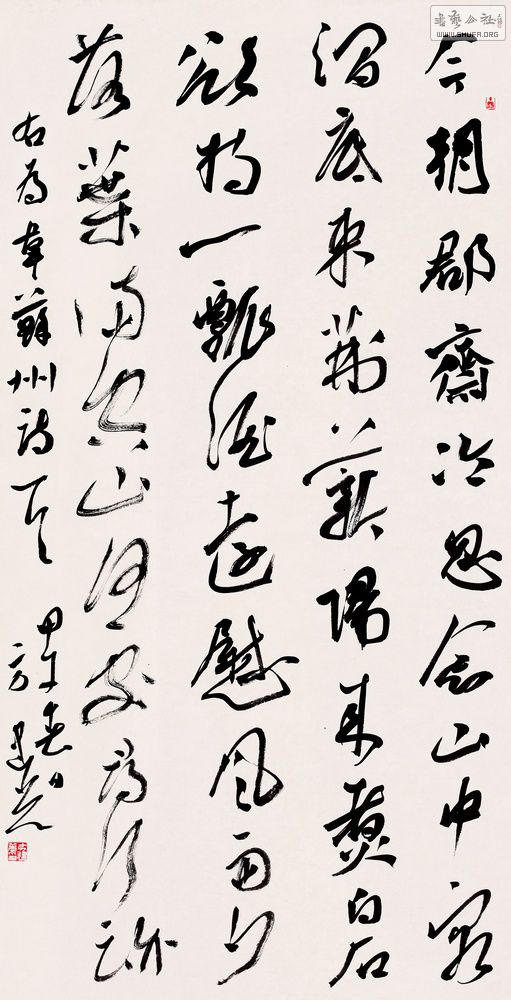 今朝郡齋冷思念山中客
澗底束荊薪歸來煑白石
欲持一瓢酒遠慰風雨夕
落葉滿空山何處尋行跡
右為韋蘇州詩一首
甲午春日
方建光
書藝公社
WWW.SHUFA.ORG